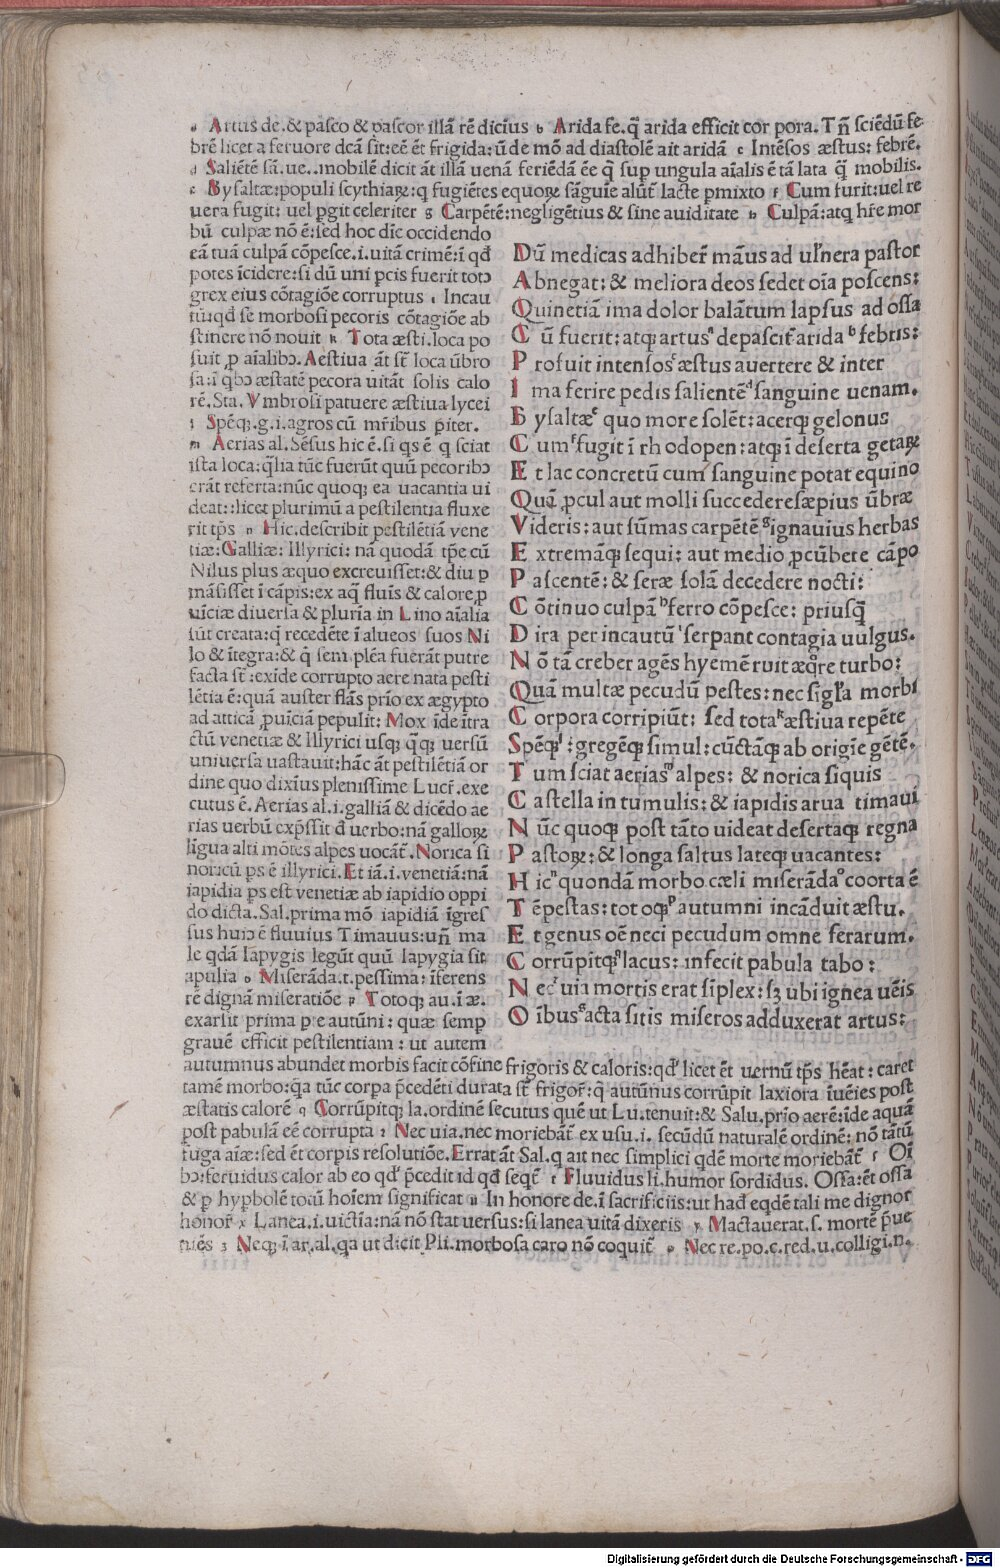 a Artus de. & pasco & pascor illā rē dicius b Arida fe. q̄ arida efficit cor pora. Tn̄ sciēdū fe
brē licet a feruore dcā sit: eē ēt frigida: ūde mō ad diastolē ait aridā c Intēsos æstus: febrē.
d Saliētē sā. ue.. mobilē dicit āt illā uenā feriēdā ēe q̄ sup ungula aīalis ē tā lata q̄ mobilis.
e Bysaltæ: populi scythiaꝝ: q fugiētes equoꝝ sāguīe alūt̄ lacte ꝑmixto f Cum furit: uel re
uera fugit: uel ꝑgit celeriter g Carpētē: negligētius & sine auiditate h Culpā: atq; hr̄e mor
bū culpæ nō ē: sed hoc dīc occidendo
eā tuā culpā cōpesce. i. uitā crimē: ī qđ
potes īcidere: si dū uni ꝑcis fuerit totꝰ
grex eius cōtagiōe corruptus i Incau
tū: qđ se morbosi pecoris cōtagiōe ab
stinere nō nouit k Tota æsti. loca po
suit ꝓ aīalibꝰ. Aestiua āt st̄ loca ūbro
sa: ī qbꝰ æstatē pecora uitāt solis calo
rē. Sta. Vmbrosi patuere æstiua lycei
l Spēq;. g. i. agros cū mr̄ibus ꝑiter.
m Aerias al. Sēsus hic ē. si qs ē q sciat
ista loca: q̄lia tūc fuerūt quū pecoribꝰ
erāt referta: nūc quoq; ea uacantia ui
deat: licet plurimū a pestilentia fluxe
rit tp̄s n Hic. describit pestilētiā vene
tiæ: Galliæ: Illyrici: nā quodā tp̄e cū
Nilus plus æquo excreuisset: & diu ꝑ
māsisset ī cāpis: ex aq̄ fluīs & calore ꝓ
uīciæ diuersa & pluria in Lino aīalia
sūt creata: q̄ recedēte ī alueos suos Ni
lo & ītegra: & q̄ sem plēa fuerāt putre
facta st̄: exide corrupto aere nata pesti
lētia ē: quā auster flās prīo ex ægypto
ad atticā ꝓuīciā pepulit: Mox īde ītra
ctū venetiæ & Illyrici usq; q̄q; uersū
uniuersa uastauit: hāc āt pestilētiā or
dine quo dixīus plenissime Lucr̄. exe
cutus ē. Aerias al. i. galliā & dicēdo ae
rias uerbū exp̄ssit đ uerbo: nā galloꝝ
ligua alti mōtes alpes uocāt̄. Norica si
noricū ꝑs ē illyrici. Et iā. i. venetiā: nā
iapidia ꝑs est venetiæ ab iapidio oppi
do dicta. Sal. prima mō iapidiā īgres
sus huiꝰ ē fluuius Timauus: un̄ ma
le qdā Iapygis legūt quū Iapygia sit
apulia o Miserāda. t. pessima: īferens
rē dignā miseratiōe p Totoq; au. ī æ.
exarsit prima ꝑe autūni: quæ semꝑ
grauē efficit pestilentiam: ut autem
Dū medicas adhiber̄ māus ad ul̄nera pastor
Abnegat: & meliora deos sedet oīa poscens:
Quinetiā ima dolor balātum lapsus ad ossa
Cū fuerit: atq; artus a depascit̄ arida b febris:
Profuit intensos c æstus auertere & inter
Ima ferire pedis salientē d sanguine uenam.
Bysaltæ e quo more solēt: acerq; gelonus
Cum f fugit ī rhodopen: atq; ī deserta getaꝝ
Et lac concretū cum sanguine potat equino
Quā ꝓcul aut molli succedere sæpius ūbræ
Videris: aut sūmas carpētē g ignauius herbas
Extremāq; sequi: aut medio ꝓcūbere cāpo
Pascentē: & seræ solā decedere nocti:
Cōtinuo culpā h ferro cōpesce: priusq̄
Dira per incautū i serpant contagia uulgus.
Nō tā creber agēs hyemē ruit æq̄re turbo:
Quā multæ pecudū pestes: nec sigl̄a morbi
Corpora corripiūt: sed tota k æstiua repēte
Spēq; l: gregēq; simul: cūctāq; ab origīe gētē.
Tum sciat aerias m alpes: & norica siquis
Castella in tumulis: & iapidis arua timaui
Nūc quoq; post tāto uideat desertaq; regna
Pastoꝝ: & longa saltus lateq; uacantes:
Hic n quondā morbo cæli miserāda o coorta ē
Tēpestas: totoq; p autumni incāduit æstu.
Et genus oē neci pecudum omne ferarum.
Corrūpitq; q lacus: infecit pabula tabo:
Nec r uia mortis erat sīplex: sꝫ ubi ignea uēis
Oībus s acta sitis miseros adduxerat artus:
autumnus abundet morbis facit cōfine frigoris & caloris: qđ licet ēt uernū tp̄s hēat: caret
tamē morbo: q̄a tūc corpa p̄cedēti durata st̄ frigor̄: q̄ autūnus corrūpit laxiora īuēies post
æstatis calorē q Corrūpitq; la. ordinē secutus quē ut Lu. tenuit: & Salu. prīo aerē: īde aquā
post pabulā eē corrupta r Nec uia. nec moriebāt̄ ex usu. i. secūdū naturalē ordinē: nō tātū
fuga aīæ: sed ēt corpis resolutiōe. Errat āt Sal. q ait nec simplici qdē morte moriebāt̄ s Oī
bꝰ: feruidus calor ab eo qđ p̄cedit id qđ seqt̄ t Fluuidus li. humor sordidus. Ossa: ēt ossa
& ꝑ hyꝑbolē totū hoīem significat u In honore de. i sacrificiis: ut hađ eqdē tali me dignor
honor̄ x Lanea. i. uictīa: nā nō stat uersus: si lanea uitā dixeris y Mactauerat. s. mortē p̄ue
niēs z Neq; ī ar. al. qa ut dicit Pli. morbosa caro nō coquit̄ Nec re. po. c. red. u. colligi. n.
Digitalisierung gefördert durch die Deutsche Forschungsgemeinschaft - DFG